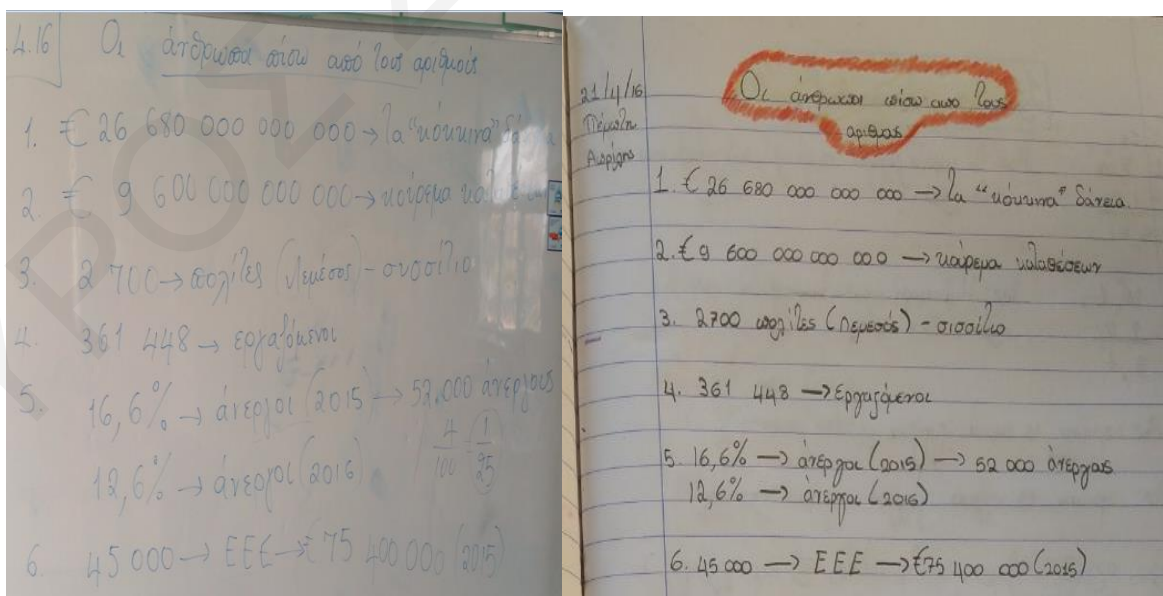 4.16 Οι άνθρωποι πίσω από τους αριθμούς
1. € 26 680 000 000 000 → τα "κόκκινα" δάνεια
2. € 9 600 000 000 000 → κούρεμα
3. 2 700 → πολίτες (Λεμέσος) - συσσίτιο
4. 361 448 → εργαζόμενοι
5. 16,6% → άνεργοι (2015) → 52.000 άνεργους
12,6% → άνεργοι (2016) 4/100 = 1/25
6. 45 000 → ΕΕΕ → € 75 400 000 (2015)
21/4/16
Πέμπτη
Απρίλης
Οι άνθρωποι πίσω απο τους
αριθμους
1. € 26 680 000 000 000 → τα "κόκκινα" δάνεια.
2. € 9 600 000 000 000 → κούρεμα καταθέσεων
3. 2700 πολίτες (Λεμεσός) - σισσίτιο
4. 361 448 → εργαζόμενοι
5. 16,6% → άνεργοι (2015) → 52 000 άνεργους
12,6% → άνεργοι (2016)
6. 45 000 → ΕΕΕ → €75 400 000 (2015)